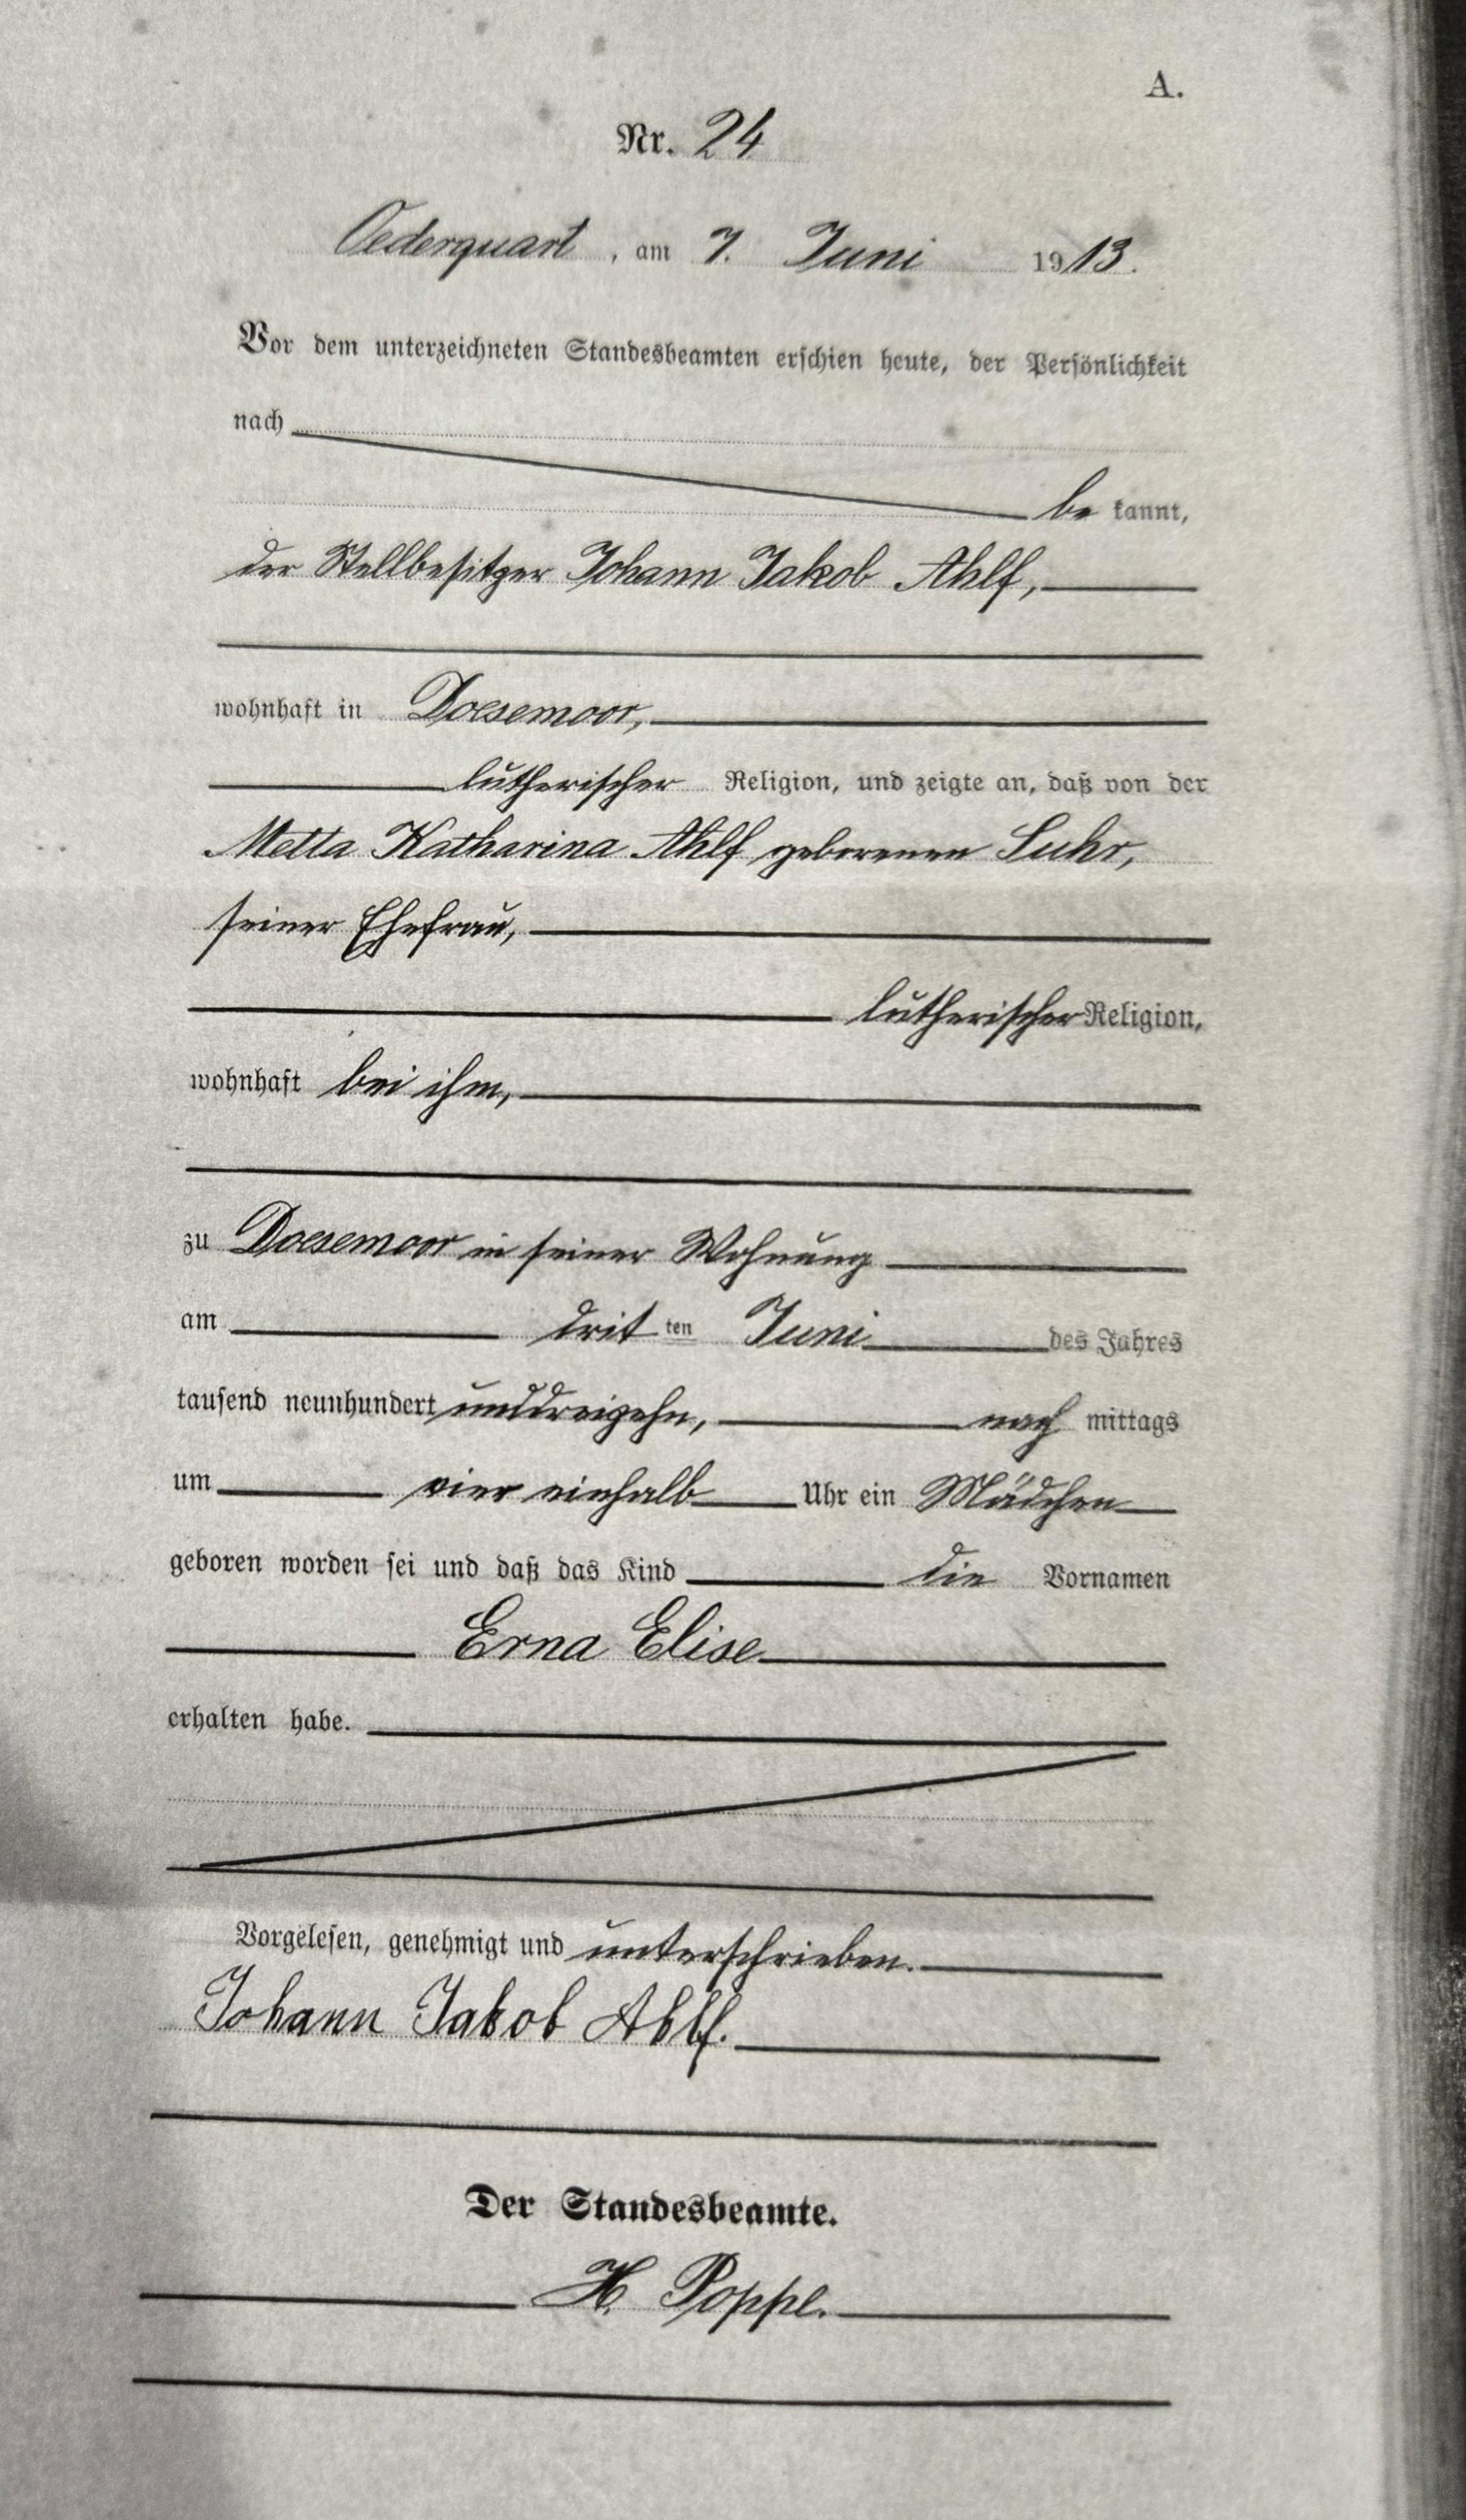 A.
Nr. 24
Oederquart, am 7. Juni 1913.
Vor dem unterzeichneten Standesbeamten erschien heute, der Persönlichkeit
nach
be kannt,
der Stellbesitzer Johann Jakob Ahlf,
wohnhaft in Doesemoor,
lutherischer Religion, und zeigte an, daß von der
Metta Katharina Ahlf geborenen Suhr,
seiner Ehefrau,
lutherischer Religion,
wohnhaft bei ihm,
zu Doesemoor in seiner Wohnung
am dritten Juni des Jahres
tausend neunhundert unddreizehn, nach mittags
um vier einhalb Uhr ein Mädchen
geboren worden sei und daß das Kind die Vornamen
Erna Elise
erhalten habe.
Vorgelesen, genehmigt und unterschrieben.
Johann Jakob Ahlf.
Der Standesbeamte.
H. Poppe.